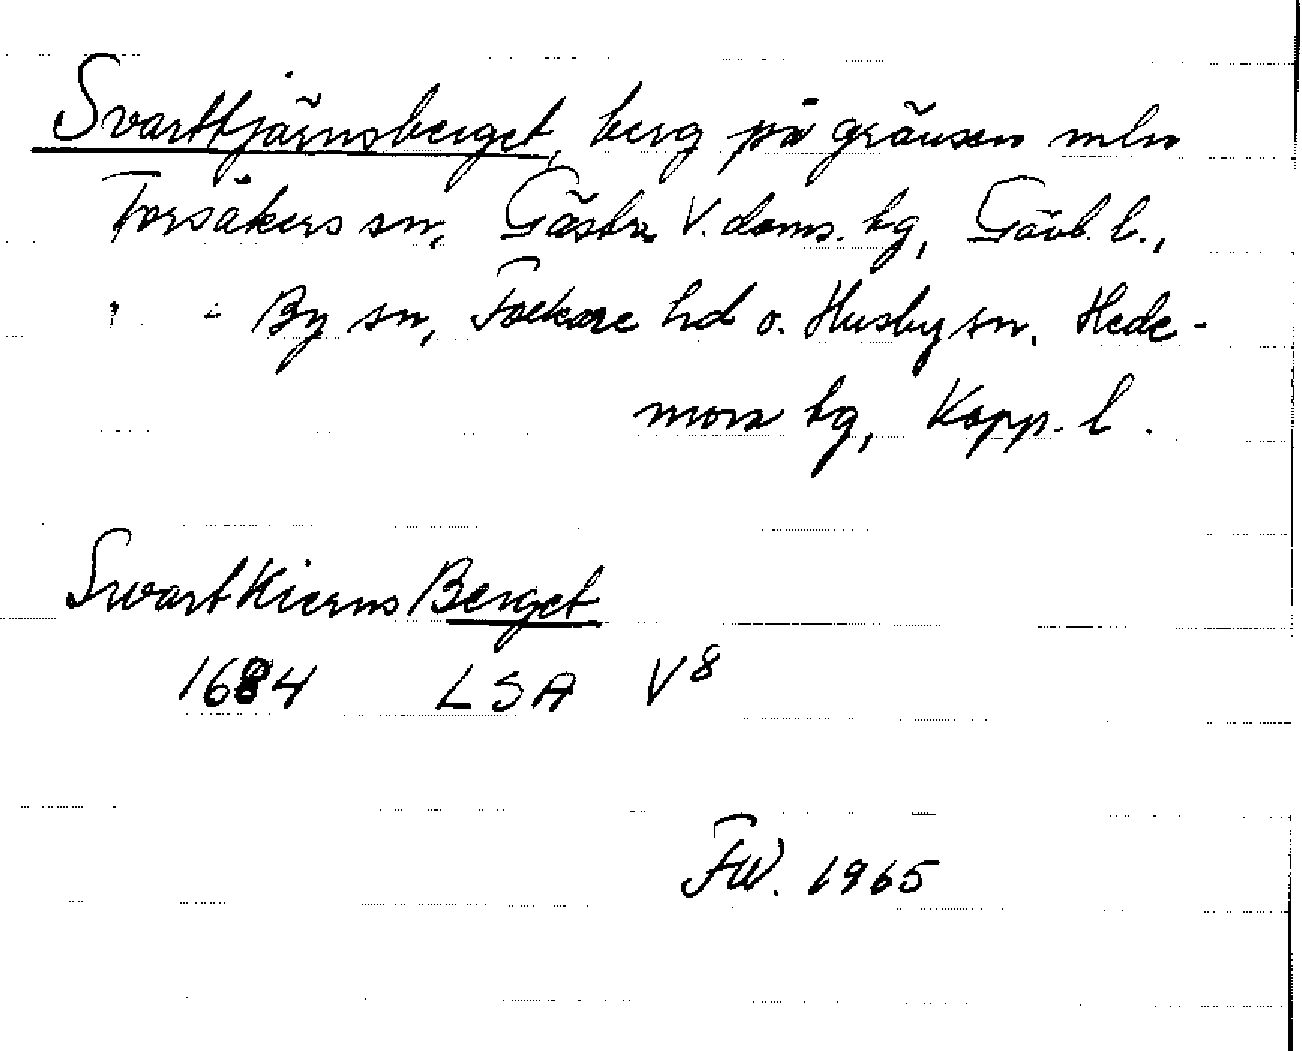 Svarttjärnsberget, berg på gränsen mln
Torsåkers sn, Gästr. V. doms. tg, Gävl. l.,
By sn, Folkare hd o. Husby sn. Hede-
mora tg, Kopp. l.
SwartKierns Berget
1684 LSA V8
FW. 1965